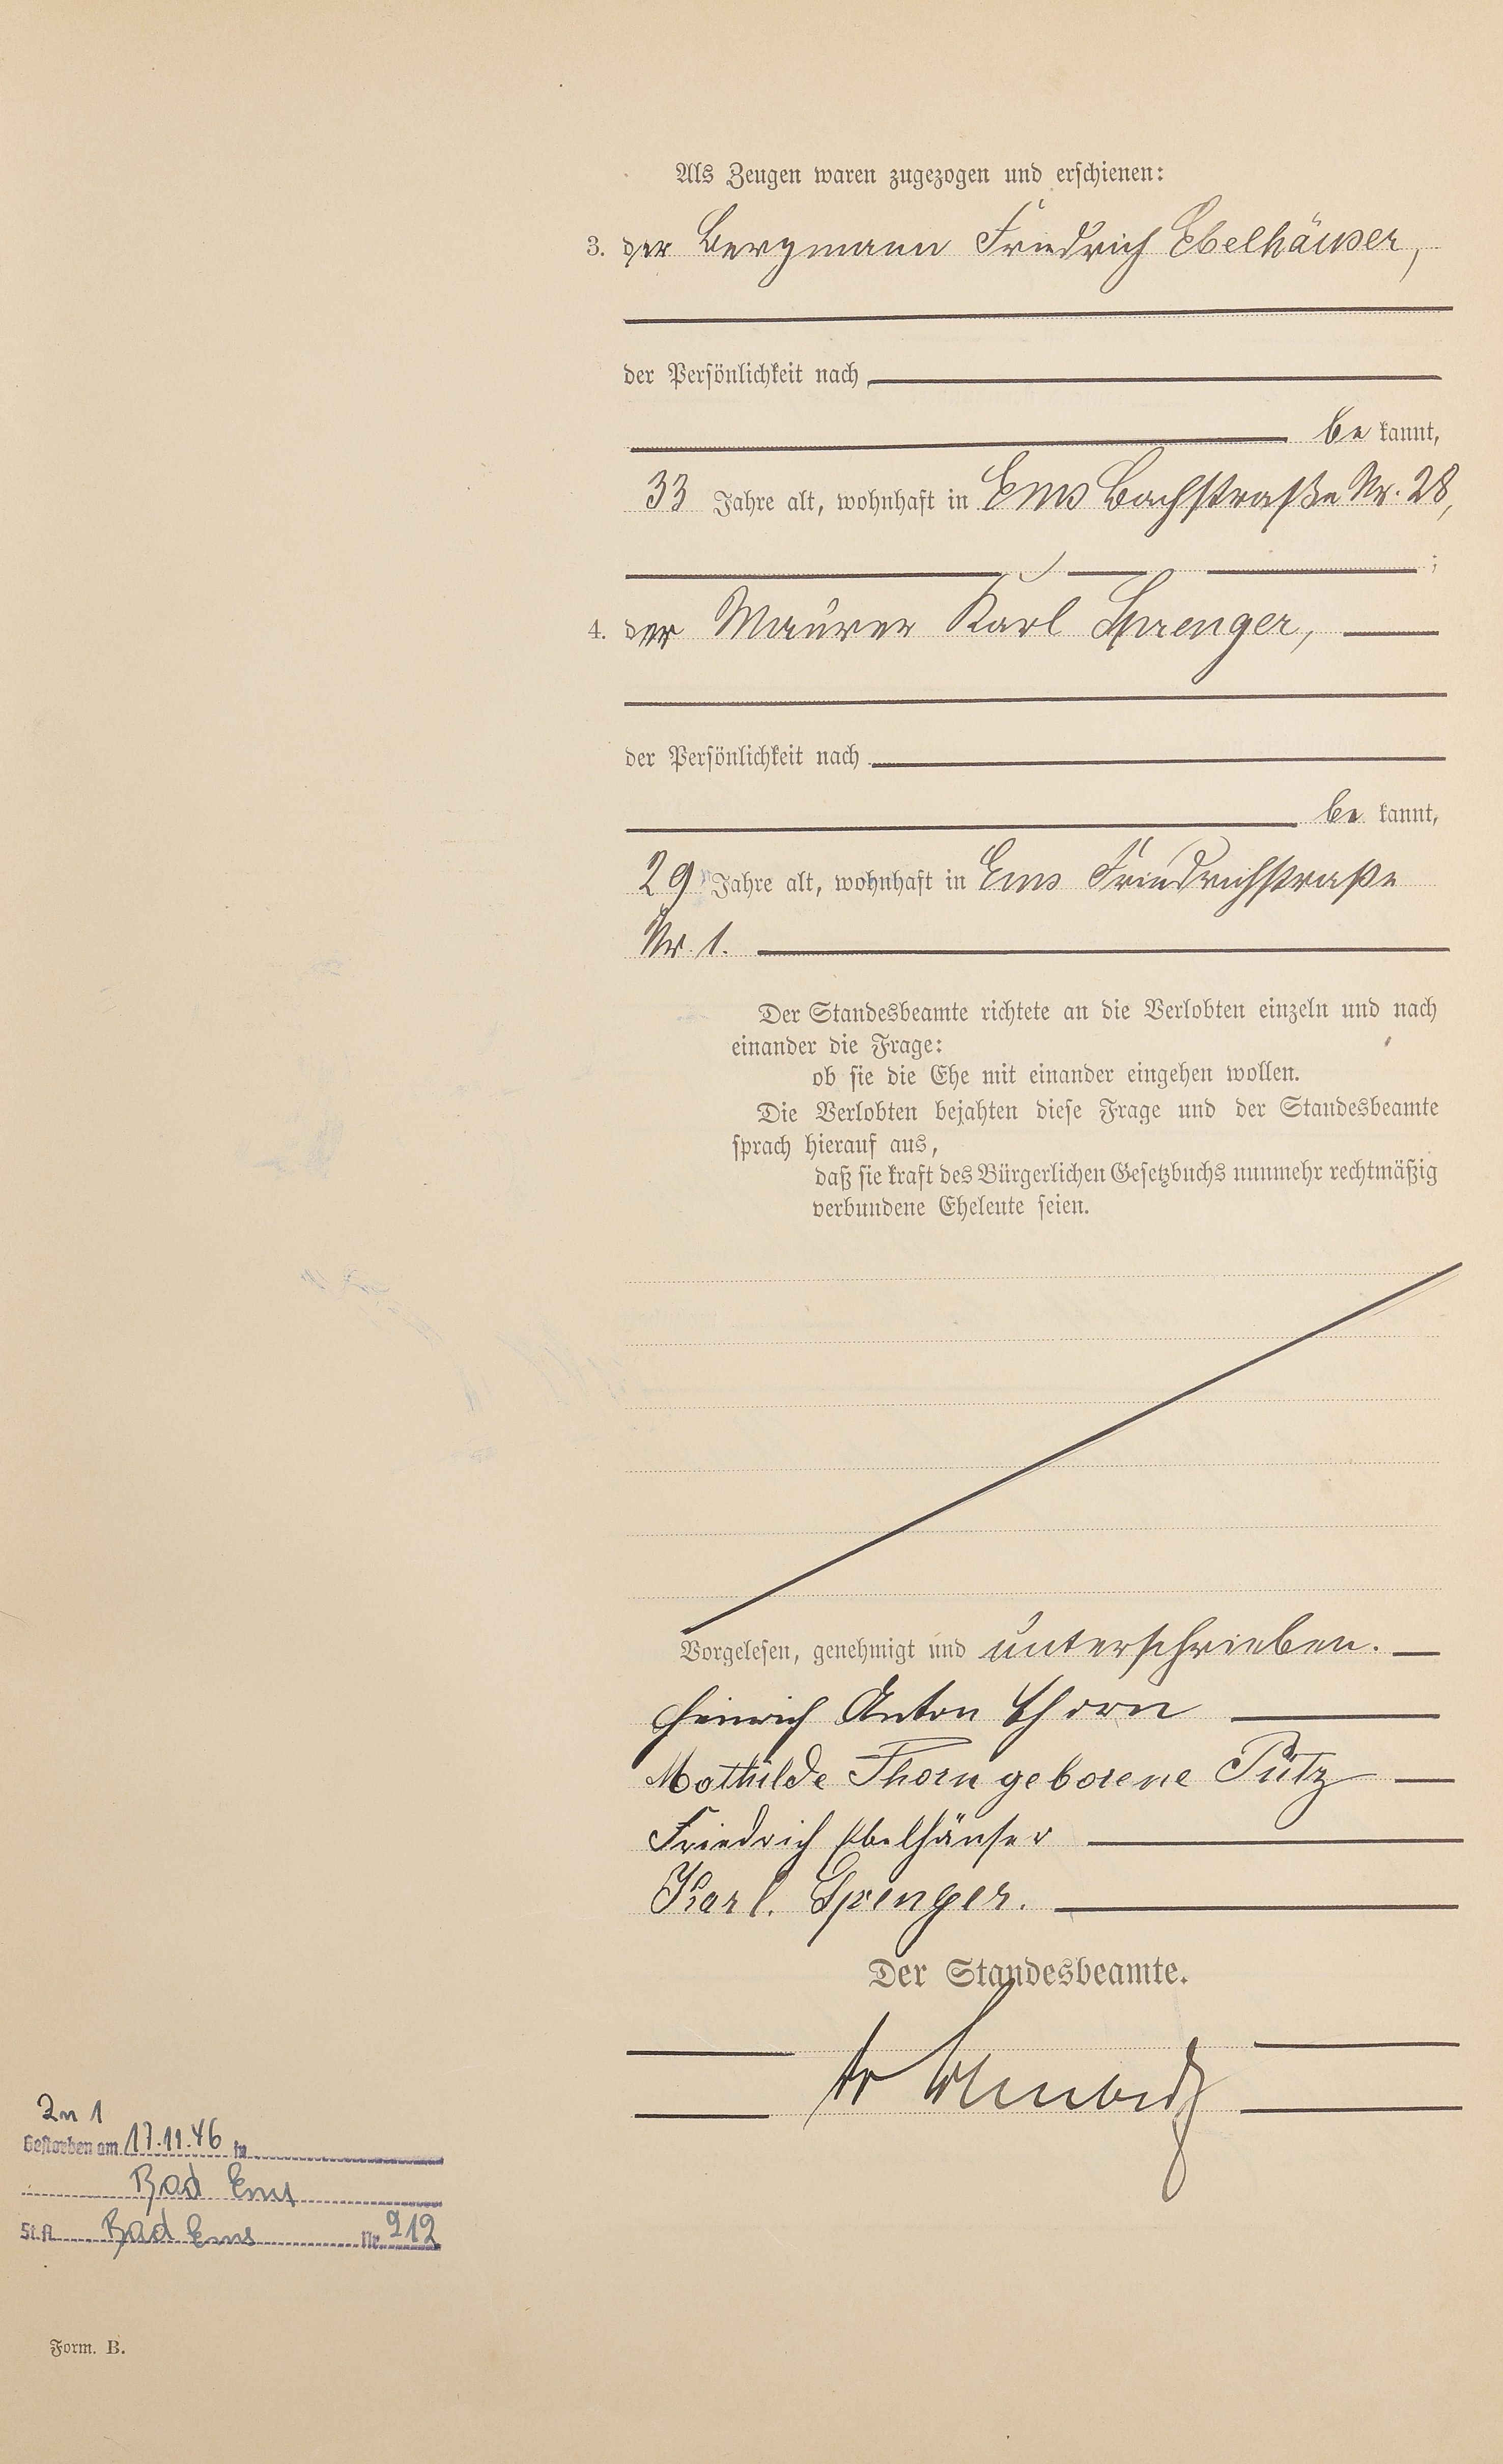 Als Zeugen waren zugezogen und erschienen:
3. der Bergmann Friedrich Ebelhäuser,
der Persönlichkeit nach
be kannt,
33 Jahre alt, wohnhaft in Ems Bachstraße Nr. 28,
;
4. der Maurer Karl Sprenger,
der Persönlichkeit nach
be kannt,
29 Jahre alt, wohnhaft in Ems Friedrichstraße
Nr. 1.
Der Standesbeamte richtete an die Verlobten einzeln und nach
einander die Frage:
ob sie die Ehe mit einander eingehen wollen.
Die Verlobten bejahten diese Frage und der Standesbeamte
sprach hierauf aus,
daß sie kraft des Bürgerlichen Gesetzbuchs nunmehr rechtmäßig
verbundene Eheleute seien.
Vorgelesen, genehmigt und unterschrieben.
Heinrich Anton Thorn
Mathilde Thorn geborene Pütz
Friedrich Ebelhäuser
Karl. Sprenger.
Der Standesbeamte.
Zu 1
Gestorben am 17.11.46 in
Bad Ems
St.A. Bad Ems Nr. 212
Form. B.